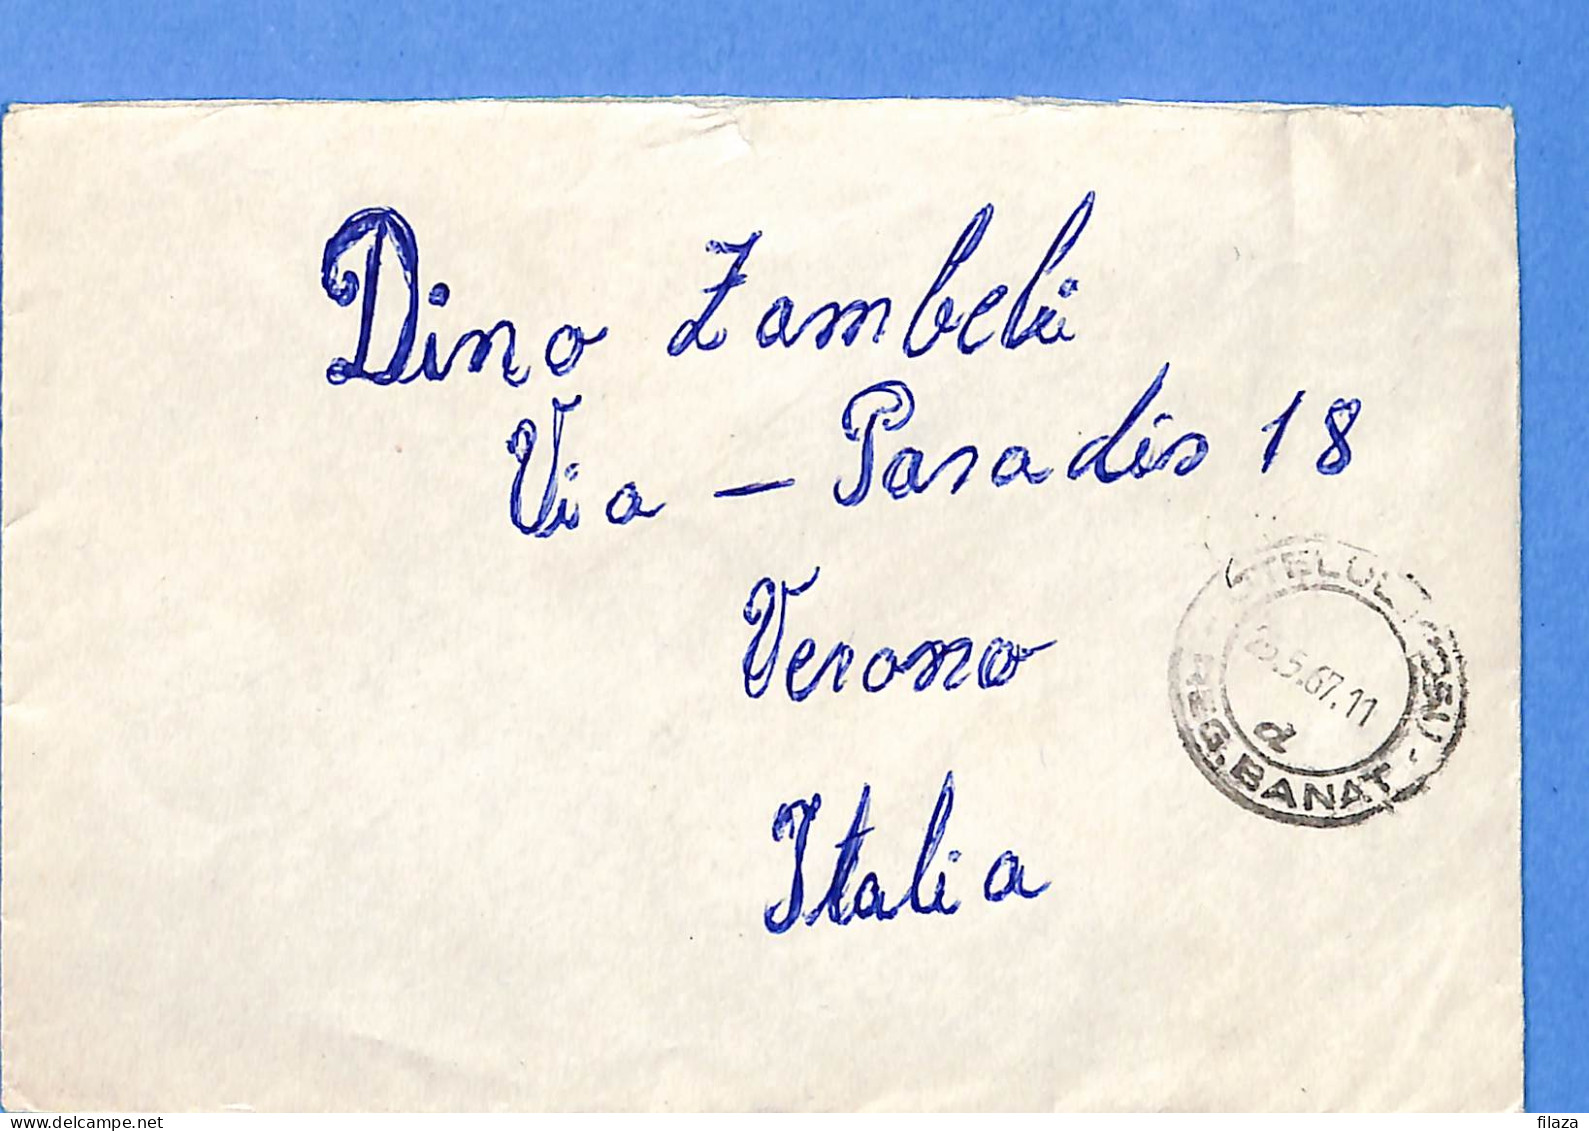 Dino Zambelli
Via - Paradis 18
Verona
Italia
OTELUL ROSU
25.5.67.11
d
REG. BANAT
delcampe.net
filaza